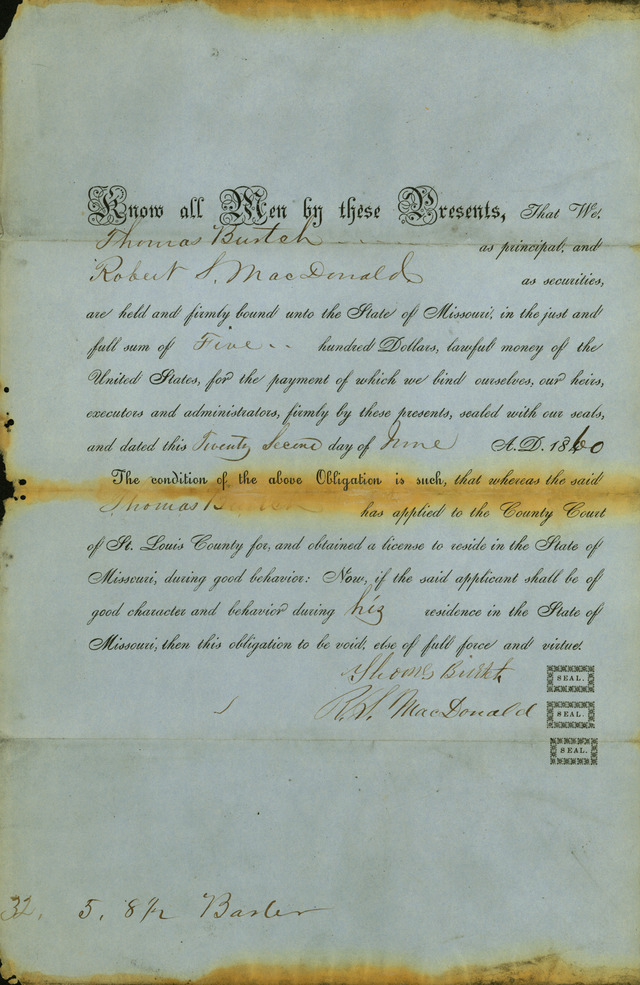 Know all Men by these Presents, That We,
Thomas Burtch
as principal, and
Robert S. MacDonald as securities,
are held and firmly bound unto the State of Missouri, in the just and
full sum of Five hundred Dollars, lawful money of the
United States, for the payment of which we bind ourselves, our heirs,
executors and administrators, firmly by these presents, sealed with our seals,
and dated this Twenty Second day of June A.D. 1860
The condition of the above Obligation is such, that whereas the said
Thomas has applied to the County Court
of St. Louis County for, and obtained a license to reside in the State of
Missouri, during good behavior: Now, if the said applicant shall be of
good character and behavior during his residence in the State of
Missouri, then this obligation to be void, else of full force and virtue.
SEAL.
R. S. MacDonald SEAL.
SEAL.
32. 5. 8½